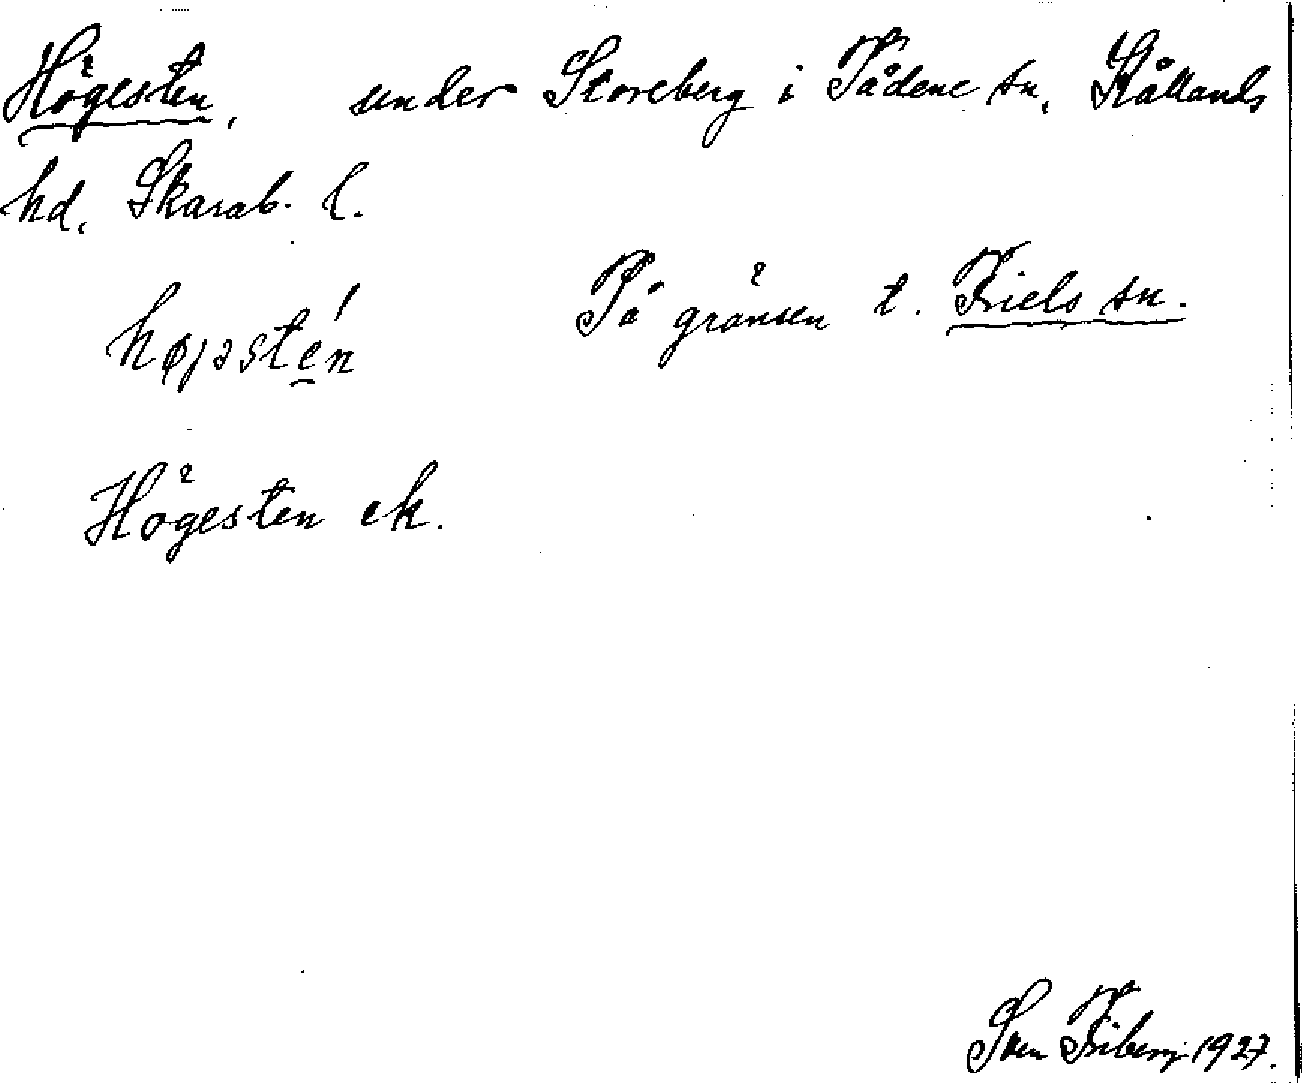 Högesten, under Storeberg i Tådene sn, Kållands
hd, Skarab. l.
højəstén På gränsen t. Friels sn.
Högesten ek.
Sven Friberg 1927.